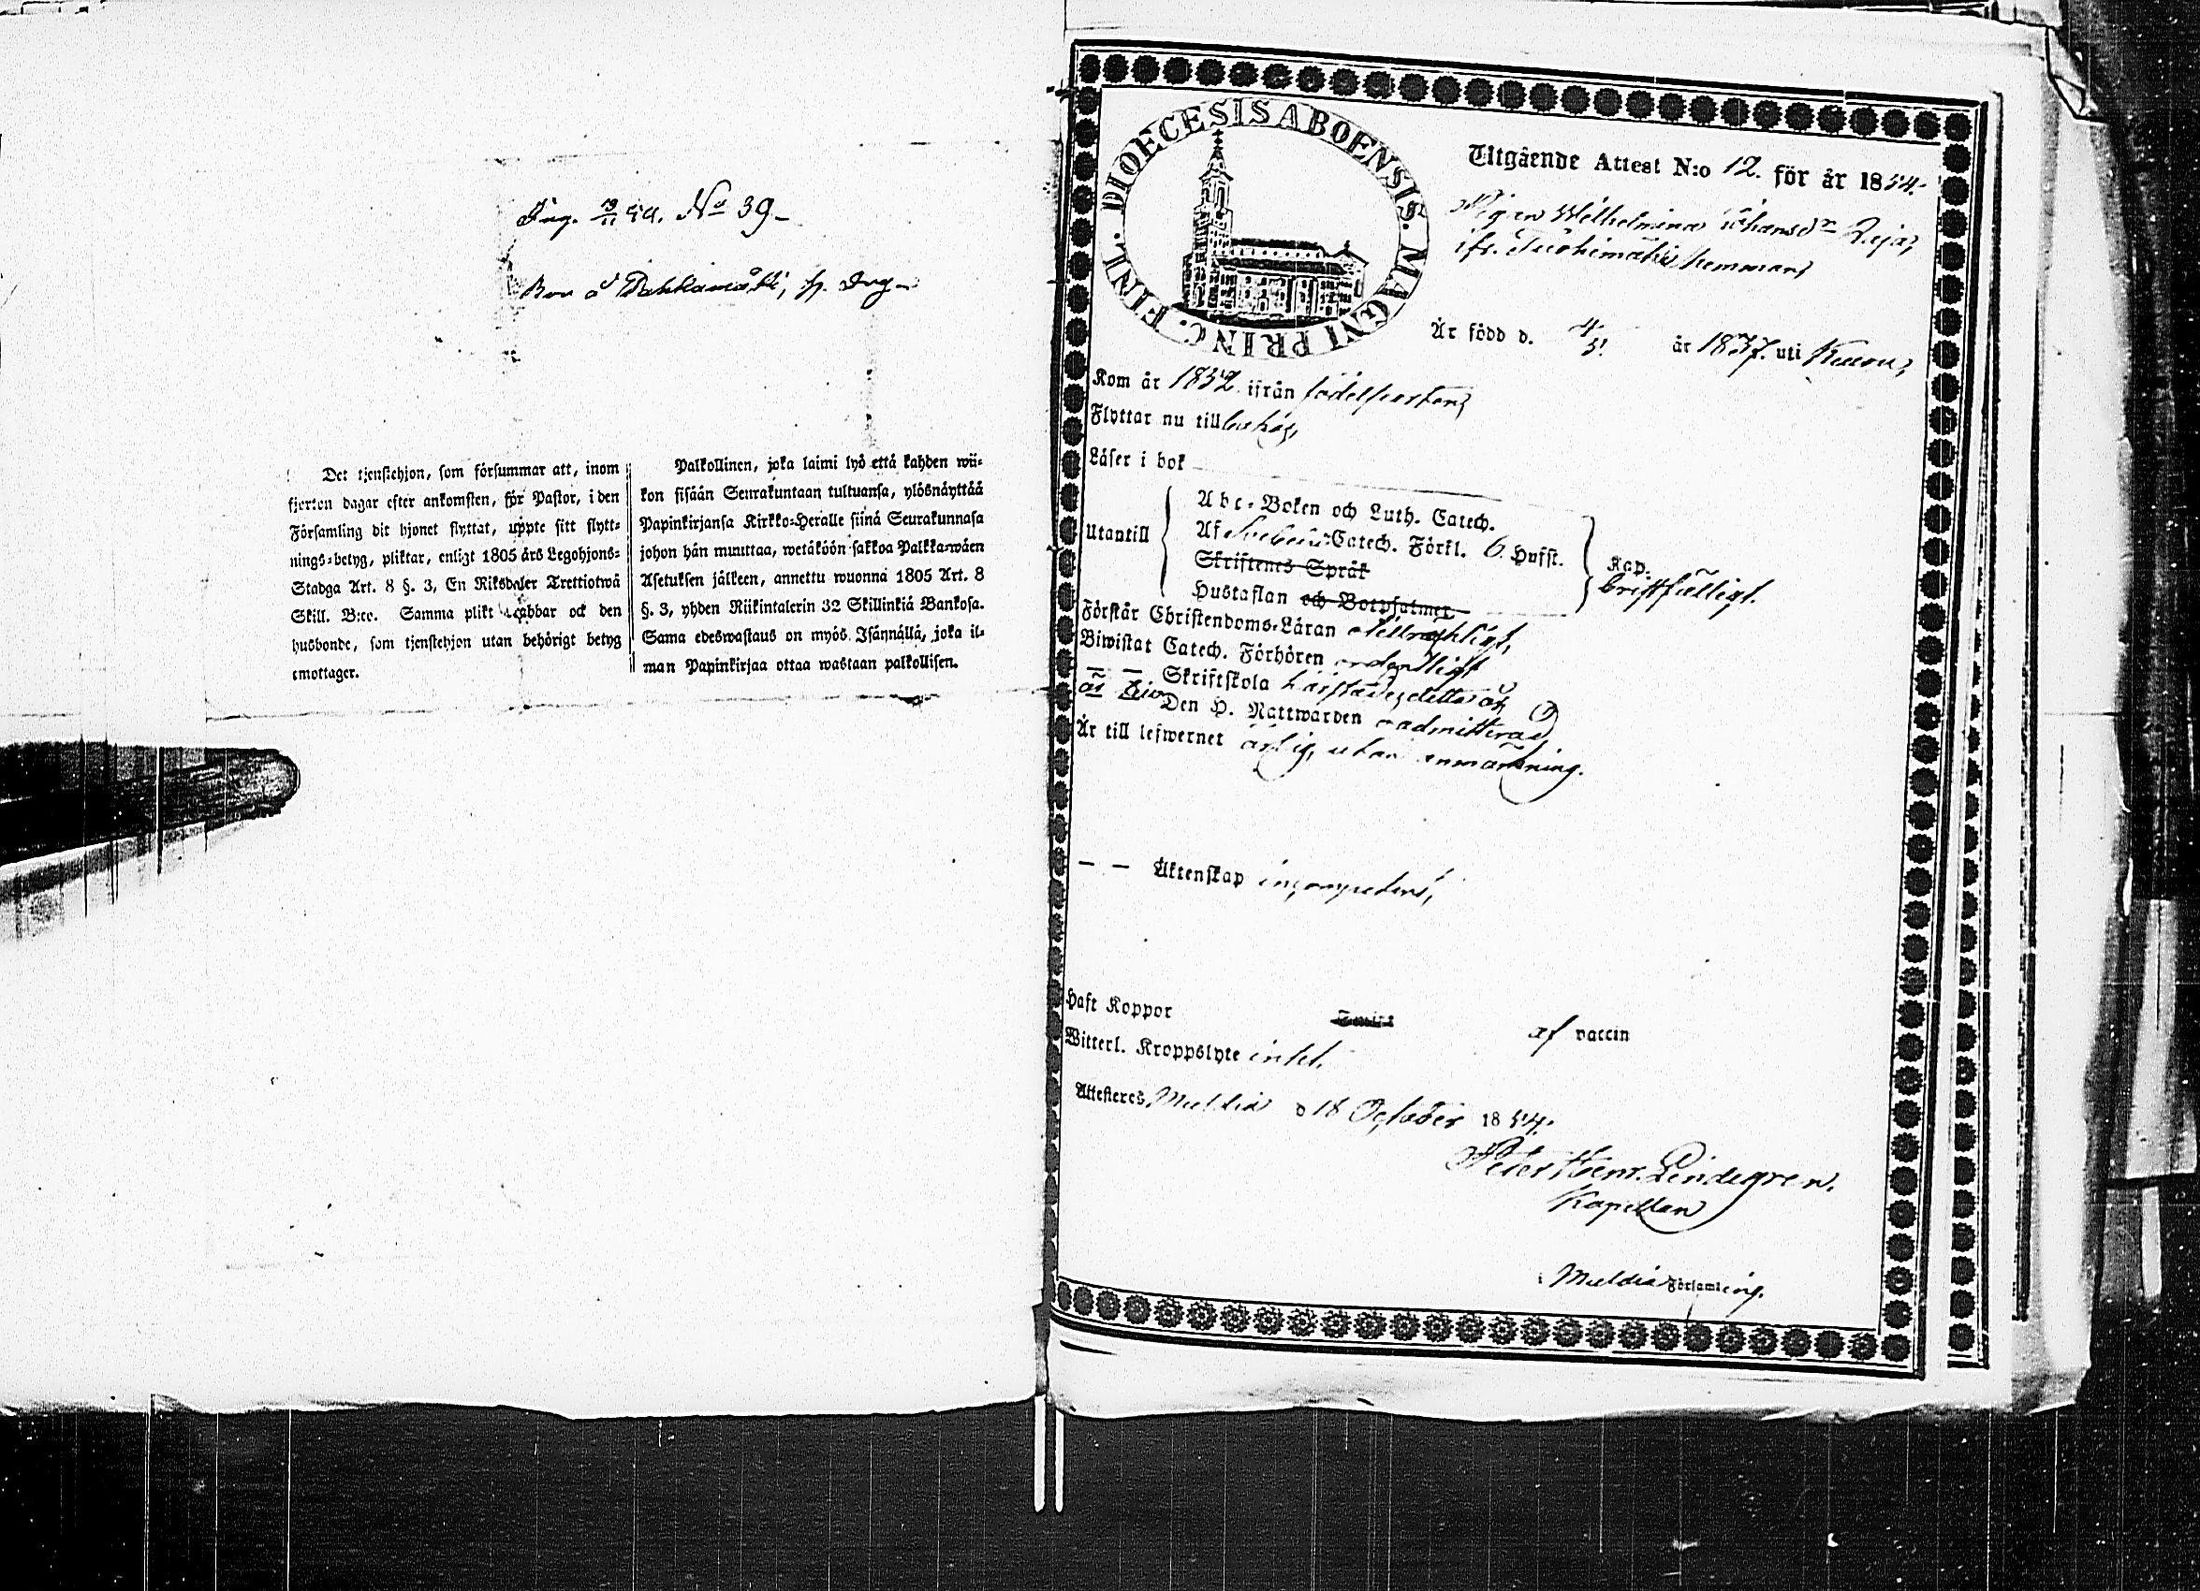 Ing. 19/11 54. No 39.
Det tjenstehjon, som försummar att, inom
fjorton dagar efter ankomsten, för Pastor, i den
Församling dit hjonet flyttat, uppte sitt flytt-
nings-betyg, pliktar, enligt 1805 års Legohjons-
Stadga Art. 8 §. 3, En Riksdaler Trettiotwå
Skill. B:co. Samma plikt ock den
husbonde, som tjenstehjon utan behörigt betyg
emottager.
Palkollinen, joka laimi lyö että kahden wii-
kon sisään Seurakuntaan tultuansa, ylösnäyttää
Papinkirjansa Kirkko-Heralle siinä Seurakunnasa
johon hän muuttaa, wetäköön sakkoa Palkka-wäen
Asetuksen jälkeen, annettu wuonna 1805 Art. 8
§. 3, yhden Riikintalerin 32 Skillinkiä Bankosa.
Sama edeswastaus on myös Isännällä, joka il-
man Papinkirjaa ottaa wastaan palkollisen.
DIOECESIS ABOENSIS. MAGNI PRINC. FINL.
Utgående Attest N:o 12. för år 1854.
Pigan Wilhelmina Johansdr
ifr. hemman,
Är född d. 4/5 år 1837. uti Kuru,
Kom år 1852 ifrån födelseorten,
Flyttar nu till
Läser i bok
Utantill
Abc-Boken och Luth. Catech.
Af Svebelii Catech. Förkl. 6. Hufst.
Skriftenes Språk
Hustaflan och Botpsalmer
Kap.
bristfälligt.
Förstår Christendoms-Läran
Biwistat Catech. Förhören ordentligt
— — Skriftskola
Den H. Nattwarden admitterad,
Är till lefwernet ärlig, utan anmärkning.
— — Äktenskap incompetent,
Haft Koppor af vaccin
Witterl. Kroppslyte intet.
Attesteres Muldia d 18 October 1854.
Peter Henr. Lindegren.
Kapellan
i Muldia Församling.